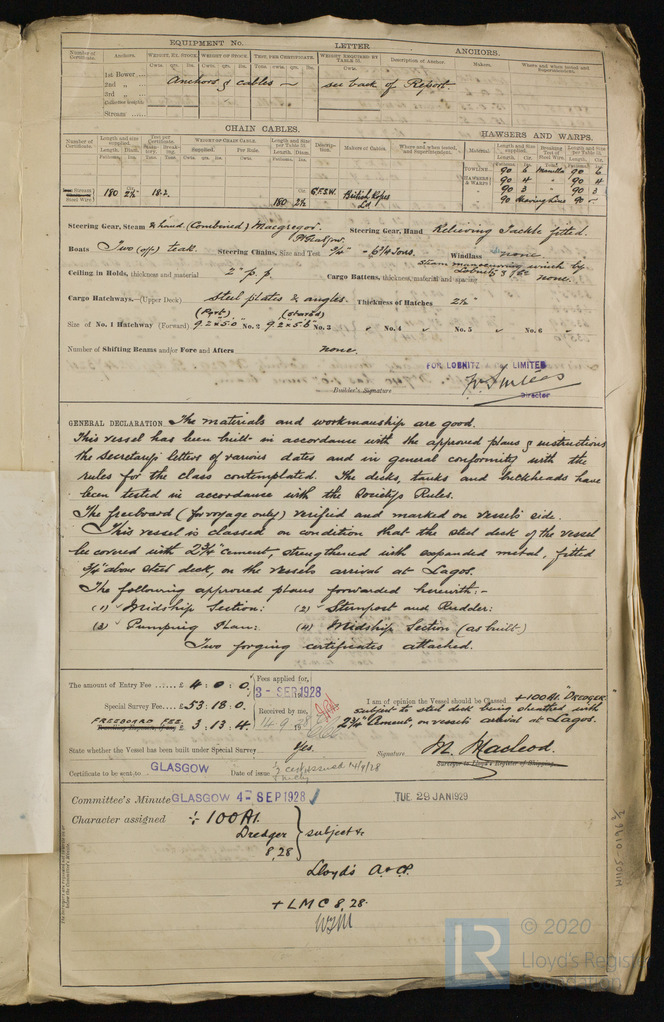 EQUIPMENT No. LETTER ANCHORS.
Number of Certificate. Anchors. WEIGHT, EX. STOCK. WEIGHT OF STOCK. TEST, PER CERTIFICATE. WEIGHT REQUIRED BY TABLE 31. Description of Anchor. Makers. Where and when tested and Superintendent.
1st Bower
2nd "
3rd "
Collective weight
Stream
Anchors & cables — see back of Report.
CHAIN CABLES. HAWSERS AND WARPS.
Number of Certificate. Length and size supplied. Test per Certificate. WEIGHT OF CHAIN CABLE. Length and size per Table 31. Description. Makers of Cables. Where and when tested, and Superintendent. Material. Length and size supplied. Breaking Test of Steel Wire. Length and size per Table 31.
TOWLINE 90 6 Manilla 90 6
HAWSERS & WARPS 90 4 " 90 4
90 3 " 90 3
90 Heaving Line 90
Steel Wire 180 2½ 18.2 180 2½ G.F.S.W. British Ropes Ld
Steering Gear, Steam & hand (Combined) Macgregor Steering Gear, Hand Relieving Tackle fitted.
Boats Two (off) teak. Steering Chains, Size and Test ¾" - 6¾ tons. Windlass none
Steam manoeuvring winch by Lobnitz & Co Ld
Ceiling in Holds, thickness and material 2" p.p. Cargo Battens, thickness, material and spacing none.
Cargo Hatchways.—(Upper Deck) Steel plates & angles. Thickness of Hatches 2½"
(Port) (Starbd)
Size of No. 1 Hatchway (Forward) 9.2 x 5.0 No. 2 9.2 x 5.6 No. 3 " No. 4 " No. 5 " No. 6 "
Number of Shifting Beams and/or Fore and Afters none.
FOR LOBNITZ & CO LIMITED
Builder's Signature
Director
GENERAL DECLARATION The materials and workmanship are good.
This vessel has been built in accordance with the approved plans & instructions
the Secretary's letters of various dates and in general conformity with the
rules for the class contemplated. The decks, tanks and bulkheads have
been tested in accordance with the Society's Rules.
The freeboard (for voyage only) verified and marked on vessel's side.
This vessel is classed on condition that the steel deck of the vessel
be covered with 2¾" cement, strengthened with expanded metal, fitted
¾" above steel deck, on the vessel's arrival at Lagos.
The following approved plans forwarded herewith:-
(1) Midship Section: (2) Sternpost and Rudder:
(3) Pumping Plan: (4) Midship Section (as built)
Two forging certificates attached.
The amount of Entry Fee £ 4 : 0 : 0 Fees applied for, 3 - SEP 1928
Special Survey Fee £ 53 : 18 : 0 Received by me, 14.9.28
FREEBOARD FEE £ 3 : 13 : 4
I am of opinion the Vessel should be Classed +100A1. "DREDGER"
subject to steel deck being sheathed with
2¾" Cement, on vessel's arrival at Lagos.
State whether the Vessel has been built under Special Survey Yes. Signature M. Macleod.
Surveyor to Lloyd's Register of Shipping.
Certificate to be sent to GLASGOW Date of issue cert issued 14/9/28
Committee's Minute GLASGOW 4 - SEP 1928 TUE 29 JAN 1929
Character assigned + 100A1.
Dredger subject &
8,28
Lloyd's A & CP.
+ LMC 8,28.
© 2020
LR Lloyd's Register Foundation